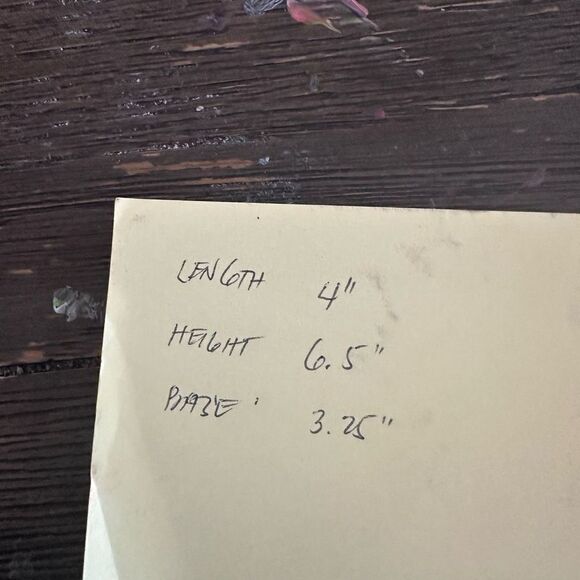 LENGTH 4"
HEIGHT 6.5"
BASE 3.25"